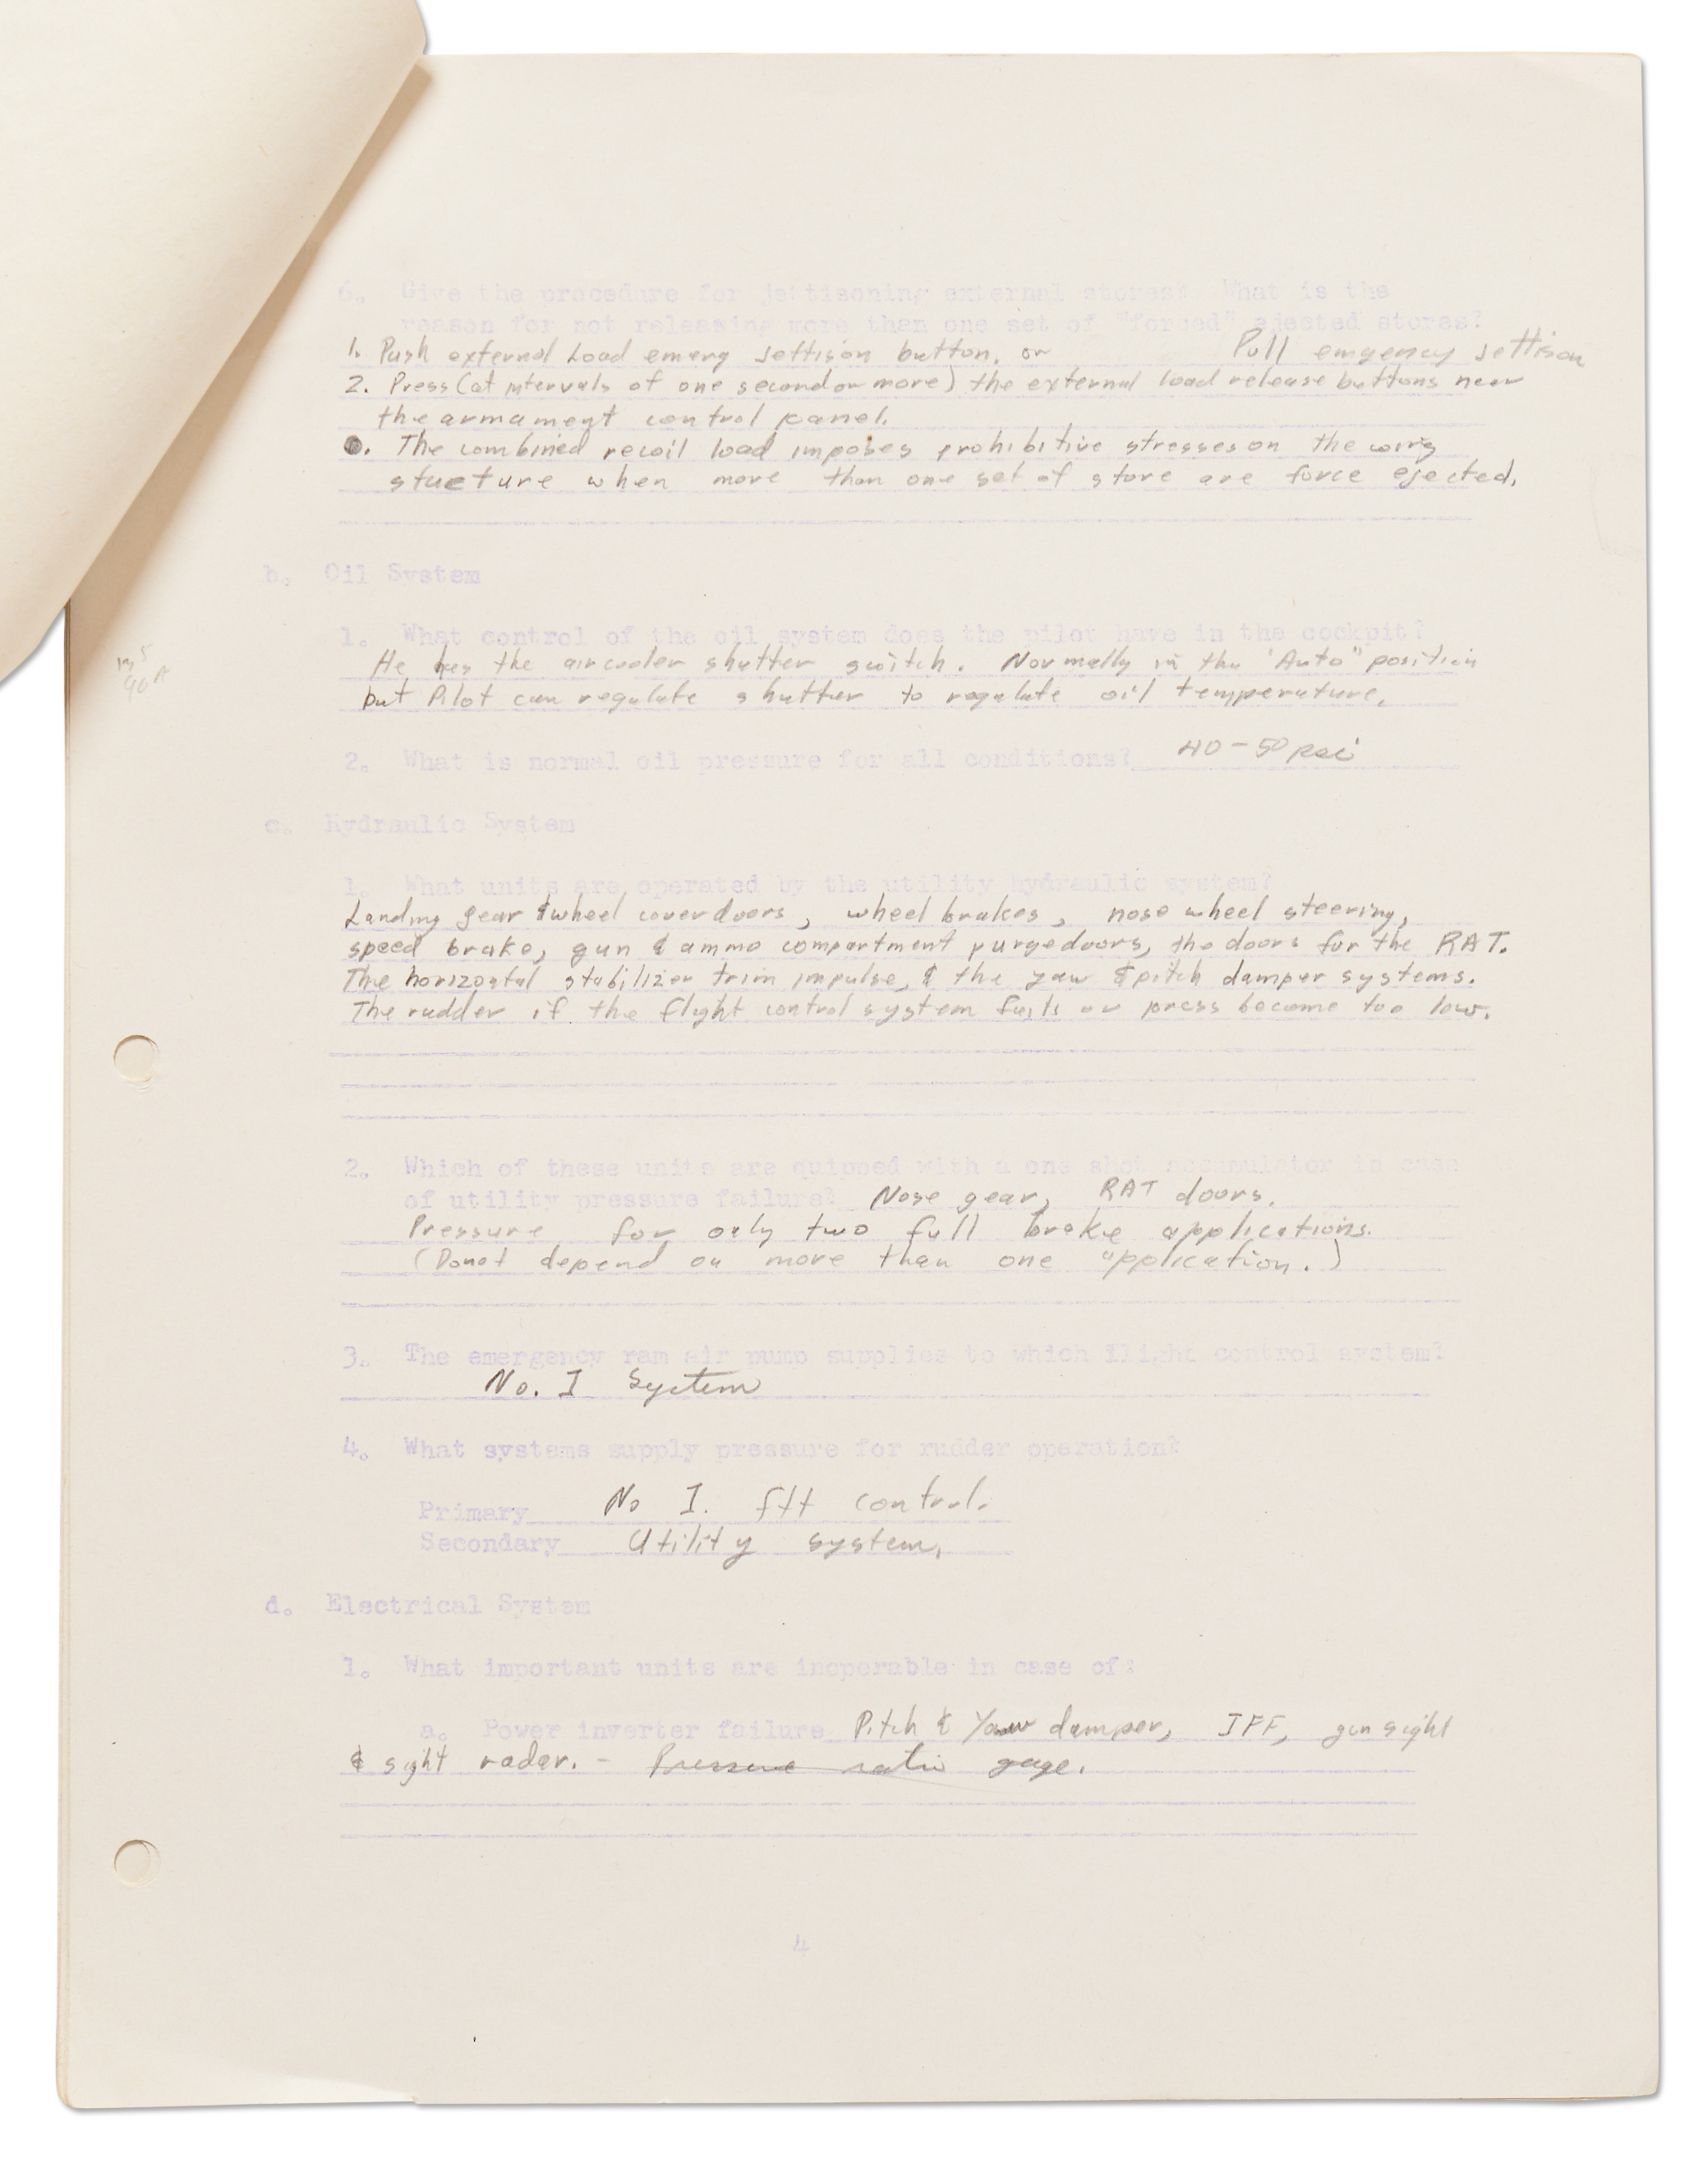 6. Give the procedure for jettisoning external stores? What is the
reason for not releasing more than one set of "forced" ejected stores?
1. Push external Load emerg Jettison button, or Pull emgency Jettison
2. Press (at intervals of one second or more) the external load release buttons near
the armament control panel.
. The combined recoil load imposes prohibitive stresses on the wing
stucture when more than one set of store are force ejected.
b. Oil System
1. What control of the oil system does the pilot have in the cockpit?
He has the air cooler shutter switch. Normally in the "Auto" position
but Pilot can regulate shutter to regulate oil temperature.
2. What is normal oil pressure for all conditions? 40-50 psi
c. Hydraulic System
1. What units are operated by the utility hydraulic system?
Landing gear & wheel cover doors, wheel brakes, nose wheel steering,
speed brake, gun & ammo compartment purge doors, the doors for the RAT.
The horizontal stabilizer trim impulse, & the yaw & pitch damper systems.
The rudder if the flight control system fails or press become too low.
2. Which of these units are quipped with a one shot accumulator in case
of utility pressure failure? Nose gear, RAT doors.
Pressure for only two full brake applications.
(Do not depend on more than one application.)
3. The emergency ram air pump supplies to which flight control system?
No. I System
4. What systems supply pressure for rudder operation?
Primary No I. flt control.
Secondary Utility system.
d. Electrical System
1. What important units are inoperable in case of:
a. Power inverter failure Pitch & Yaw damper, IFF, gun sight
& sight radar. - Pressure ratio gage.
4